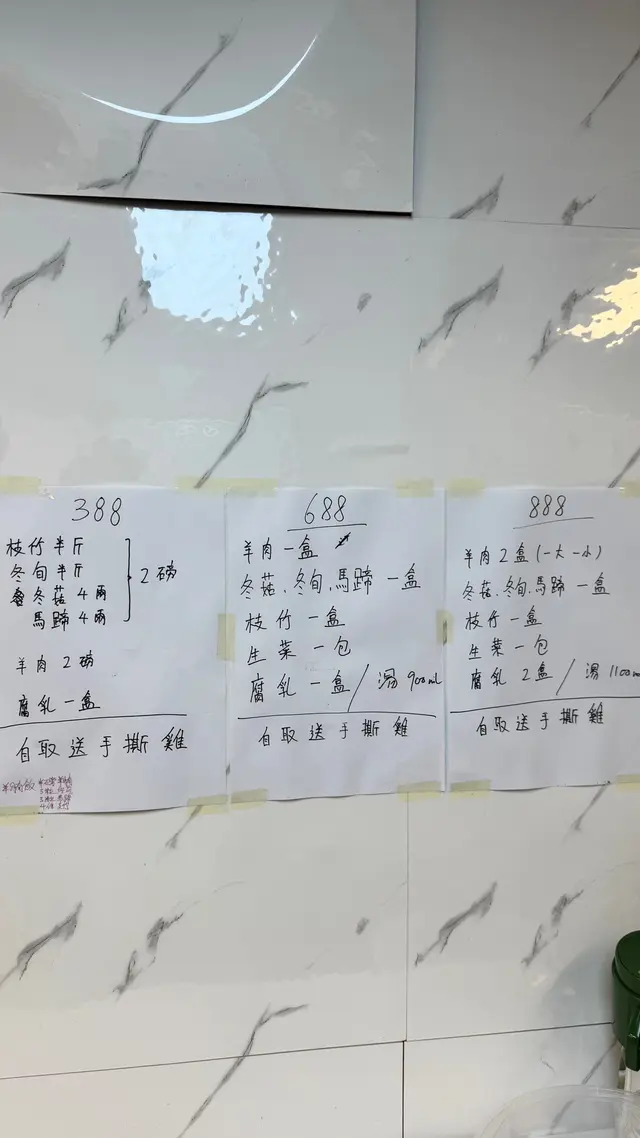 388
枝竹半斤
冬旬半斤
冬菇4兩
馬蹄4兩
2磅
羊肉2磅
腐乳一盒
自取送手撕雞
688
羊肉一盒
冬菇、冬旬、馬蹄 一盒
枝竹 一盒
生菜 一包
腐乳 一盒 / 湯900ml
自取送手撕雞
888
羊肉2盒(一大一小)
冬菇、冬旬、馬蹄 一盒
枝竹 一盒
生菜 一包
腐乳 2盒 / 湯1100m
自取送手撕雞